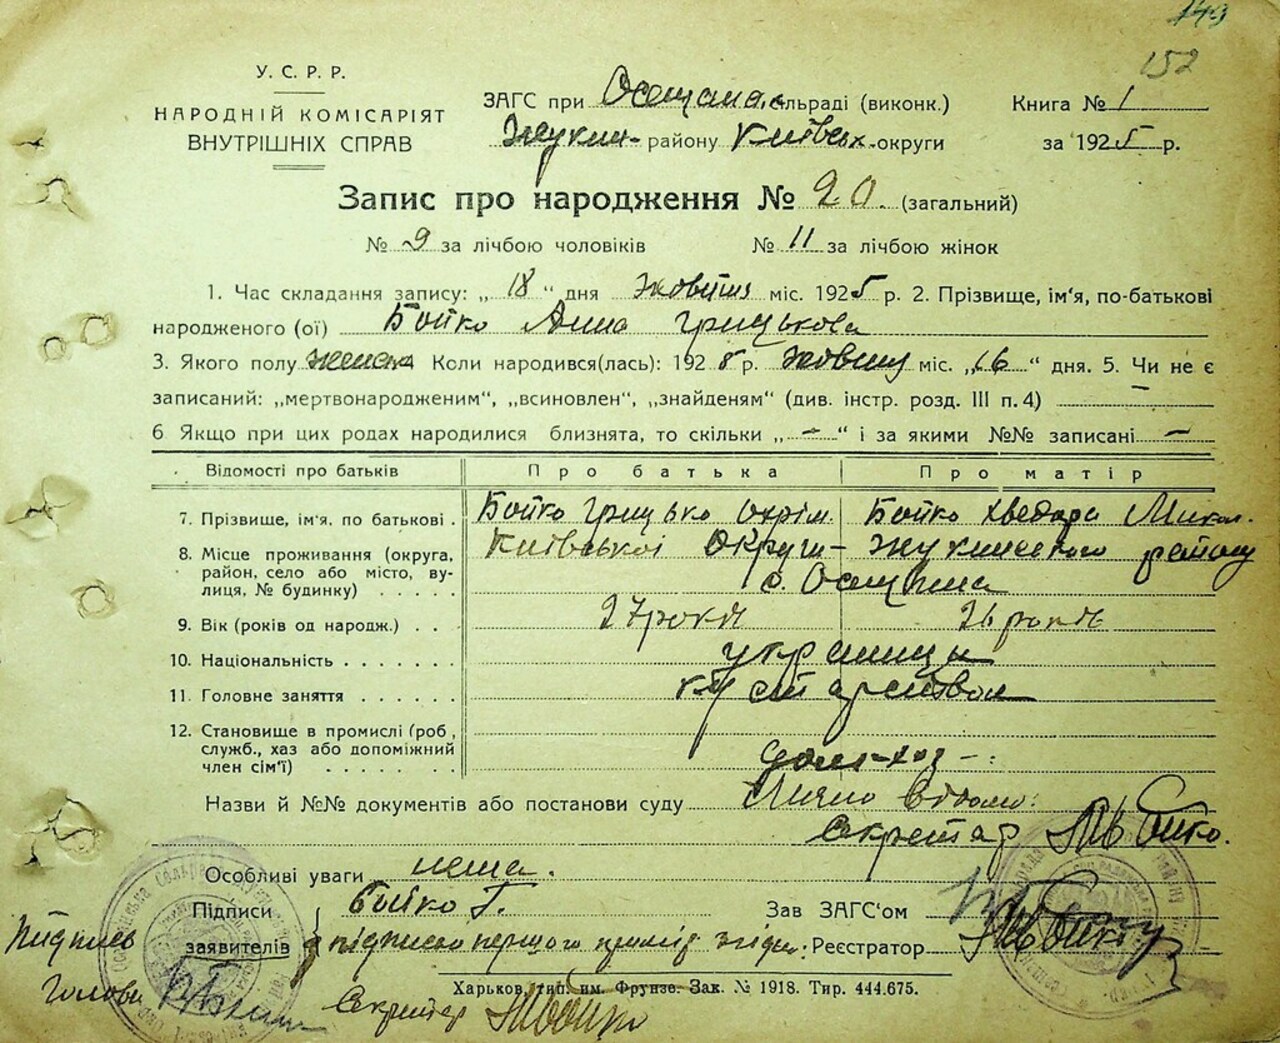 149
152
У. С. Р. Р.
НАРОДНІЙ КОМІСАРІЯТ
ВНУТРІШНІХ СПРАВ
ЗАГС при сельраді (виконк.)
Жукин- району Київськ. округи
Книга № 1
за 1925 р.
Запис про народження № 20. (загальний)
№ 9 за лічбою чоловіків № 11 за лічбою жінок
1. Час складання запису: „ 18 “ дня жовтня міс. 1925 р. 2. Прізвище, ім'я, по-батькові
народженого (ої) Бойко Анна Грицькова
3. Якого полу женска Коли народився(лась): 192 р. жовтня міс. „16“ дня. 5. Чи не є
записаний: „мертвонародженим“, „всиновлен“, „знайденям“ (див. інстр. розд. III п. 4) —
6 Якщо при цих родах народилися близнята, то скільки „ — “ і за якими №№ записані —
Відомості про батьків Про батька Про матір
7. Прізвище, ім'я, по батькові . Бойко Грицько Охрім. Бойко Хведора Микол.
8. Місце проживання (округа, Київської Округи- Жукинського району
район, село або місто, ву-
лиця, № будинку) . . . . . с.
9. Вік (років од народж.) . . 27 років 26 років
10. Національність . . . . . . . українці
11. Головне заняття . . . . . .
12. Становище в промислі (роб,
служб., хаз або допоміжний
член сім'ї) . . . . . . .
Назви й №№ документів або постанови суду Лично відомо:
Секретар Бойко.
Особливі уваги нема.
Підписи Бойко Г.
заявителів
Зав ЗАГС‘ом
Реєстратор
Підпись
Голови
Секретар
Харьков, тип. им. Фрунзе. Зак. № 1918. Тир. 444.675.